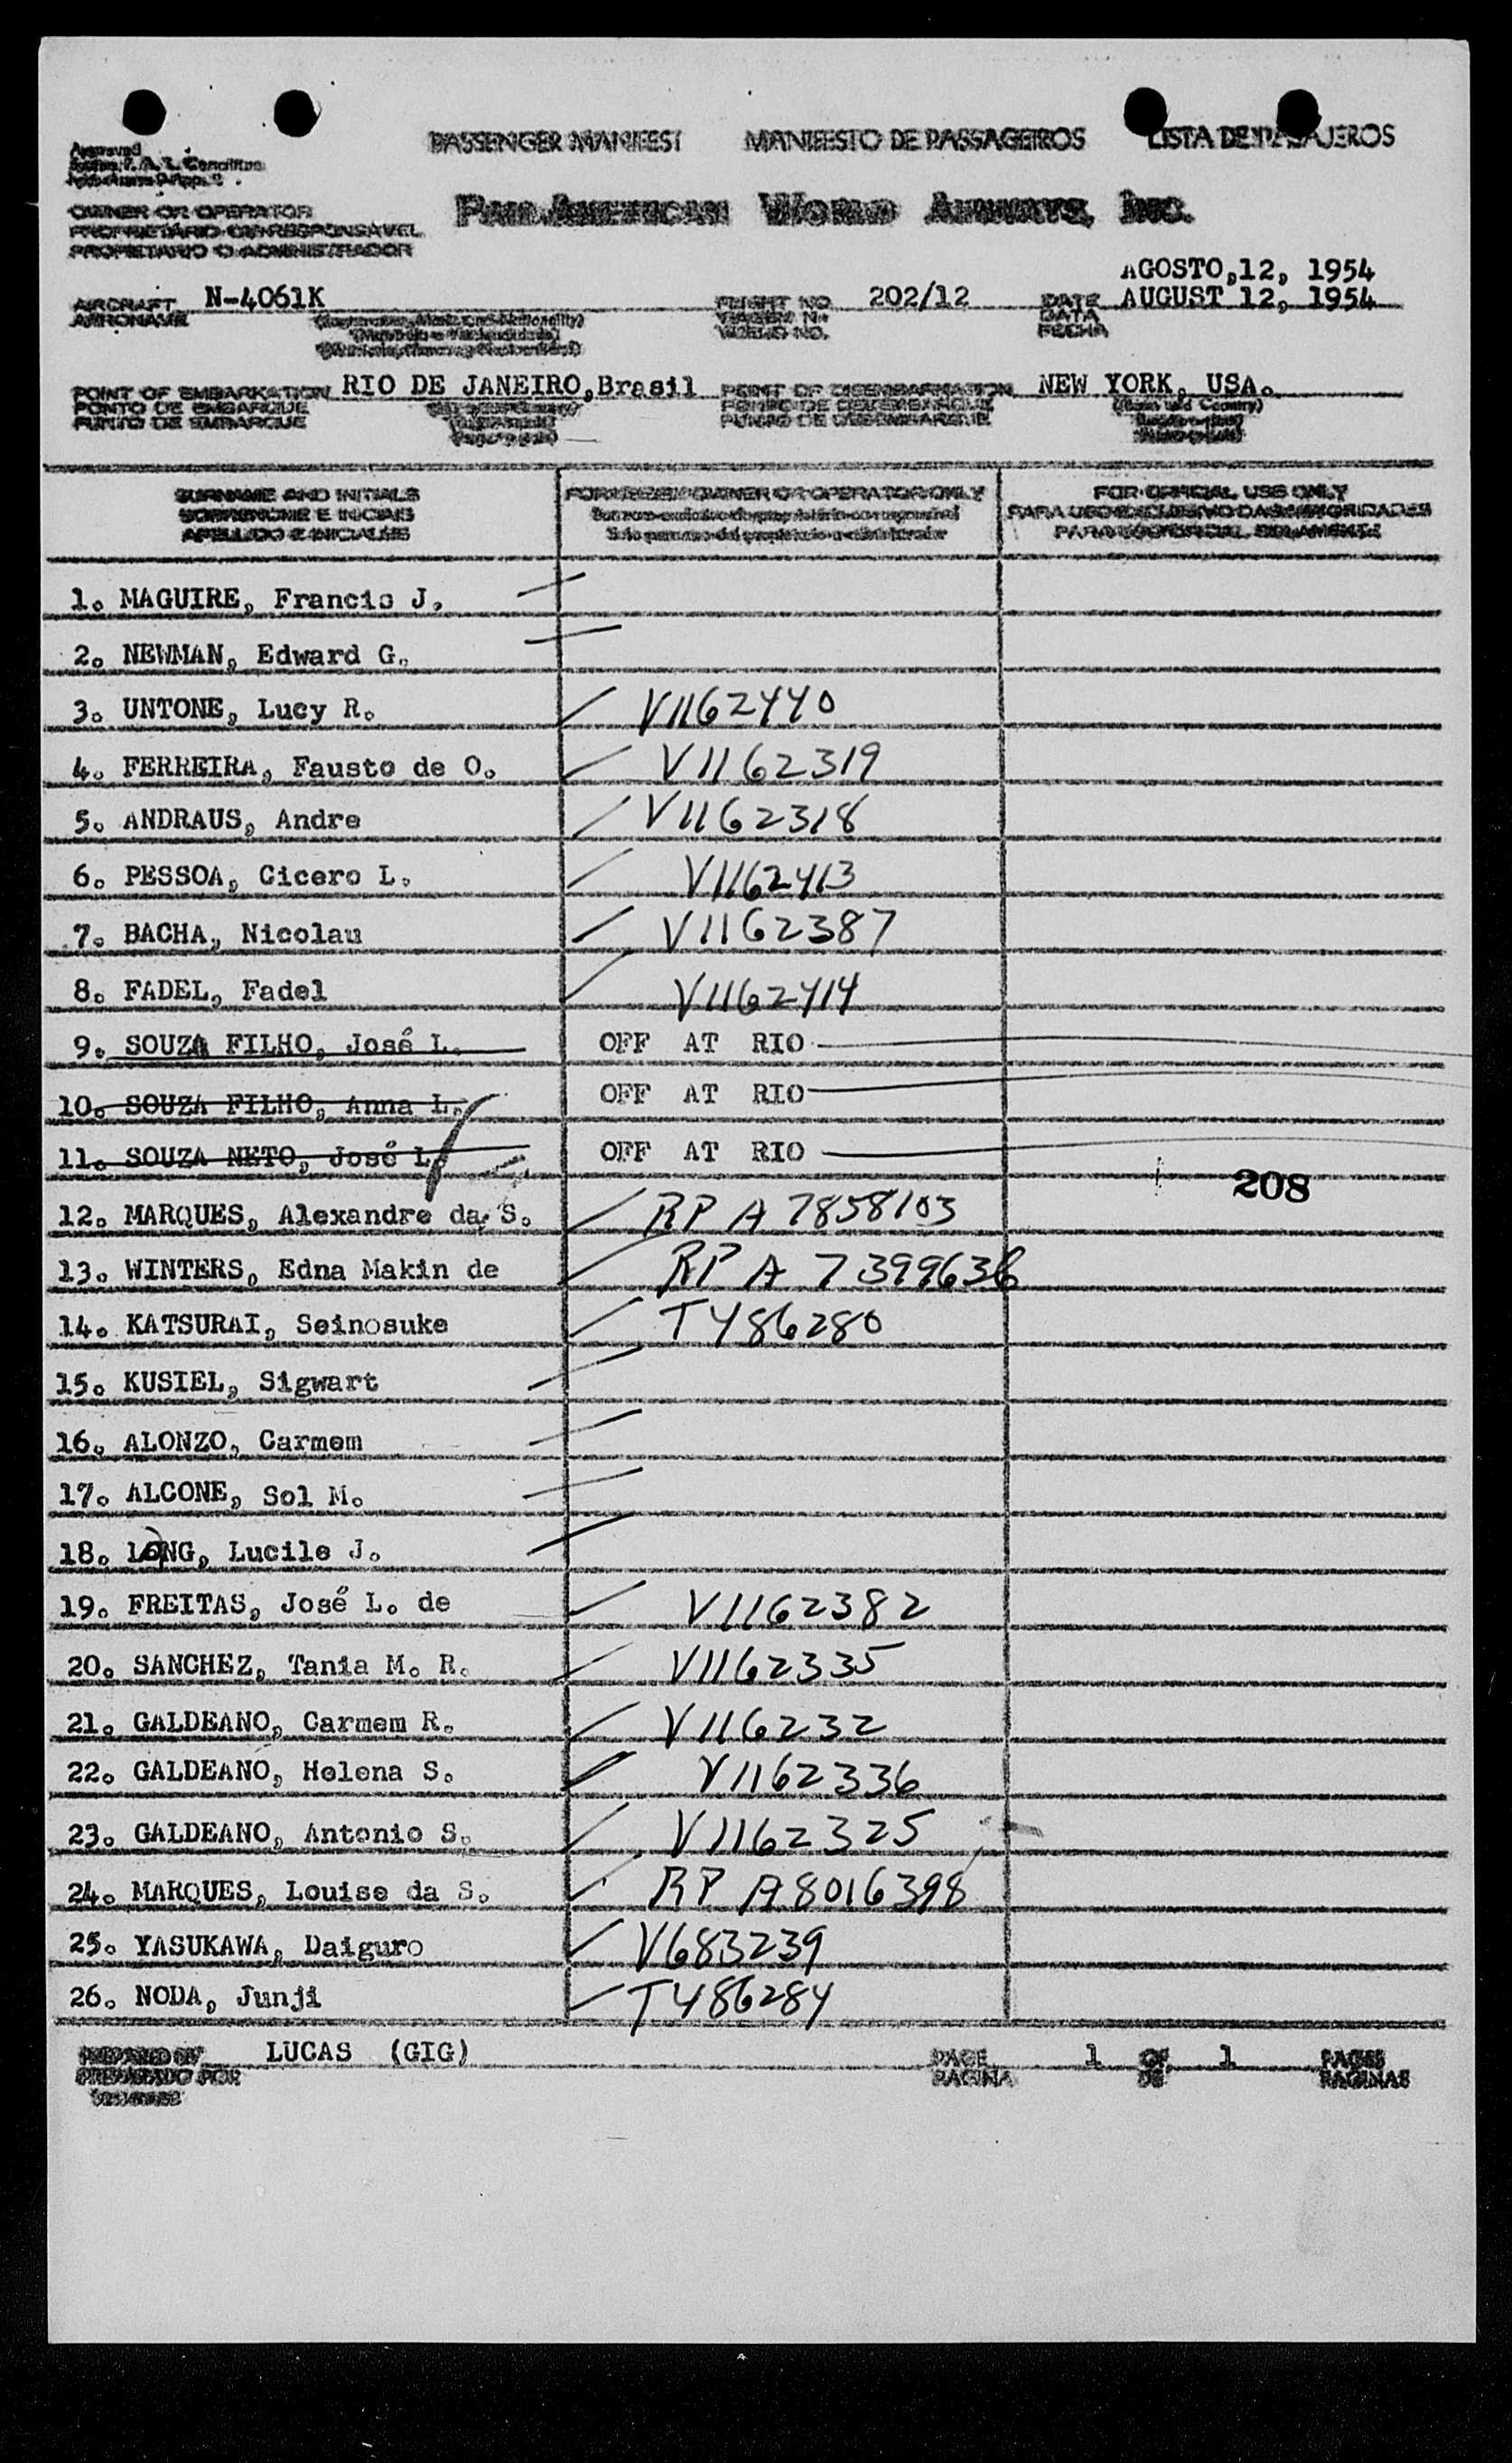 PASSENGER MANIFEST MANIFESTO DE PASSAGEIROS LISTA DE PASAJEROS
Approved
OWNER OR OPERATOR
PROPRIETÁRIO OU RESPONSAVEL
PROPIETARIO O ADMINISTRADOR
PAN AMERICAN WORLD AIRWAYS, INC.
AGOSTO,12, 1954
AIRCRAFT N-4061K FLIGHT NO. 202/12 DATE AUGUST 12, 1954
AERONAVE DATA
FECHA
POINT OF EMBARKATION RIO DE JANEIRO,Brasil POINT OF DISEMBARKATION NEW YORK, USA.
PONTO DE EMBARQUE PONTO DE DESEMBARQUE (Town and Country)
PUNTO DE EMBARQUE PUNTO DE DESEMBARQUE
SURNAME AND INITIALS FOR USE BY OWNER OR OPERATOR ONLY FOR OFFICIAL USE ONLY
SOBRENOME E INICIAIS PARA USO EXCLUSIVO DAS AUTORIDADES
APELLIDO E INICIALES PARA USO OFICIAL SOLAMENTE
1. MAGUIRE, Francis J.
2. NEWMAN, Edward G.
3. UNTONE, Lucy R. V1162440
4. FERREIRA, Fausto de O. V1162319
5. ANDRAUS, Andre V1162318
6. PESSOA, Cicero L. V1162413
7. BACHA, Nicolau V1162387
8. FADEL, Fadel V1162414
9. SOUZA FILHO, José L. OFF AT RIO
10. SOUZA FILHO, Anna L. OFF AT RIO
11. SOUZA NETO, José L. OFF AT RIO
208
12. MARQUES, Alexandre da S. RP A 7858103
13. WINTERS, Edna Makin de RP A 7399636
14. KATSURAI, Seinosuke T486280
15. KUSIEL, Sigwart
16. ALONZO, Carmem
17. ALCONE, Sol M.
18. LONG, Lucile J.
19. FREITAS, José L. de V1162382
20. SANCHEZ, Tania M. R. V1162335
21. GALDEANO, Carmem R. V116232
22. GALDEANO, Helena S. V1162336
23. GALDEANO, Antonio S. V1162325
24. MARQUES, Louise da S. RP A8016398
25. YASUKAWA, Daiguro V683239
26. NODA, Junji T486284
PREPARED BY LUCAS (GIG) PAGE 1 OF 1 PAGES
PREPARADO POR PAGINA DE PAGINAS